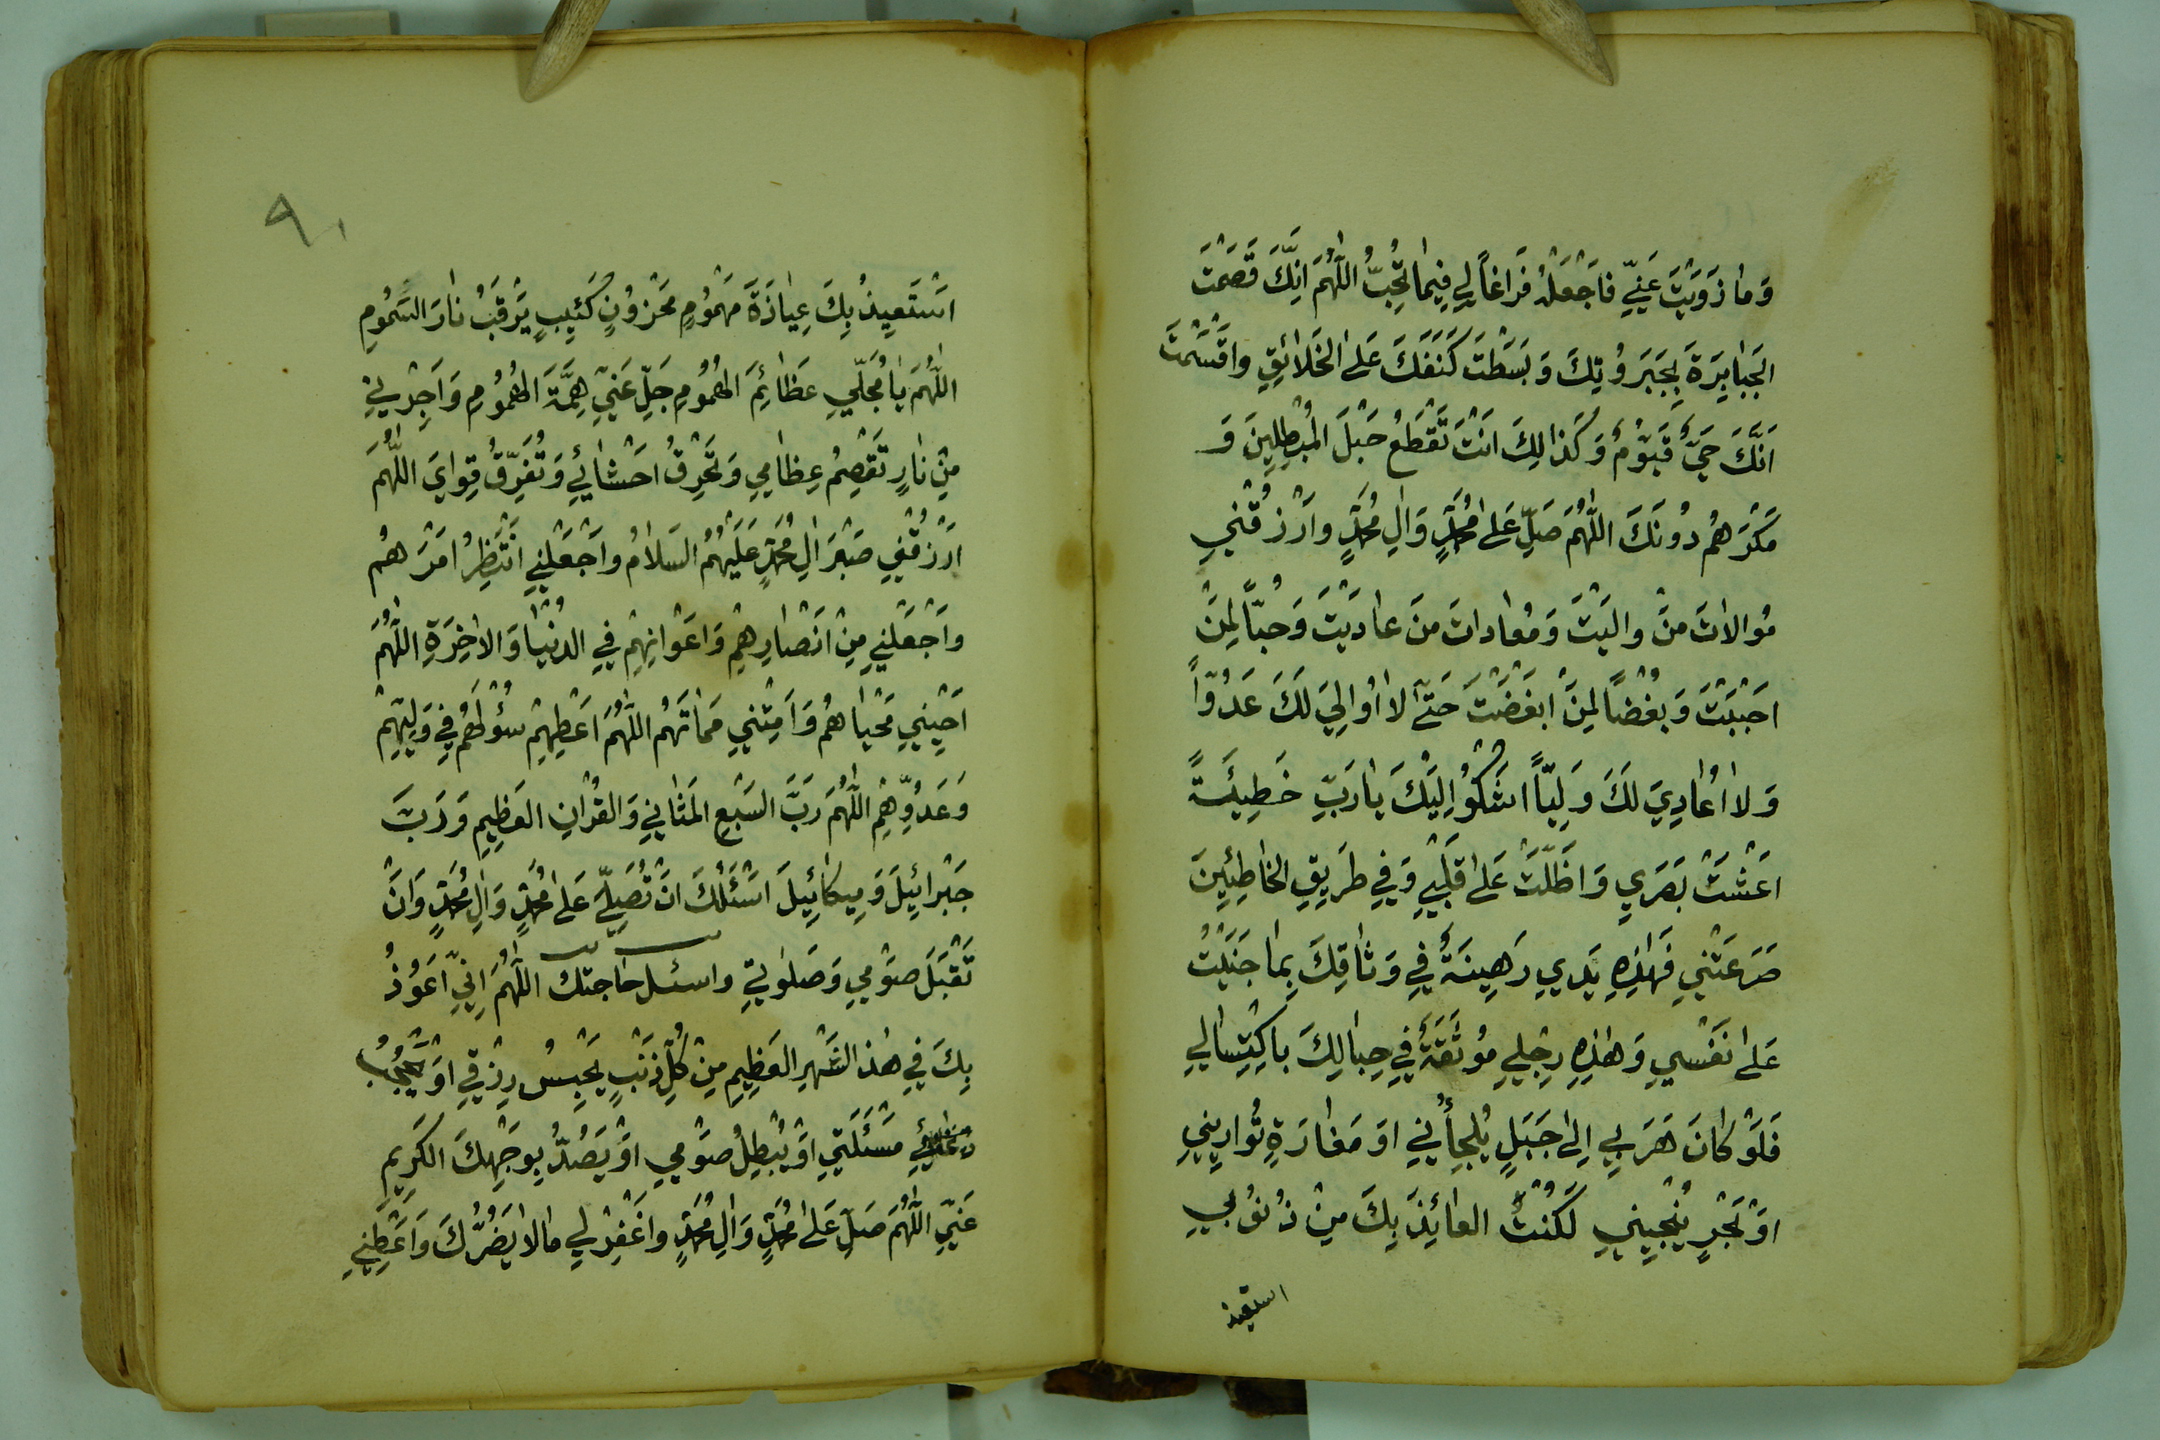 وَمٰا زَوَيْتَ عَنِّي فَاجْعَلْهُ فَرَاغاً لِي فِيمٰا تُحِبُّ اللّٰهُمَ اِنَّكَ قَصَمْتَ
الجَبٰابِرَةَ بِجَبَرُوتِكَ وَبَسَطْتَ كَنَفَكَ عَلىَ الخَلٰائِقِ وَاقْسَمْتَ
اَنَّكَ حَيٌّ قَيّوُمٌ وَكَذٰالِكَ اَنْتَ تَقْطَعُ حَبْلَ المُبْطِلِينَ وَ
مَكْرَهُمْ دُونَكَ اللّٰهُمَ صَلِّ عَلىٰ مُحَمَّدٍ وَالِ مُحَمَّدٍ وَارْزُقْنِي
مُوالاٰتَ مَنْ وٰالَيْتَ وَمُعٰادٰاتَ مَنْ عٰادَيْتَ وَحُبّاً لِمَنْ
اَحْبَبْتَ وَبُغْضاً لِمَنْ ابْغَضْتَ حَتّىٰ لاٰ اوُالِيَ لَكَ عَدُوّاً
وَلاٰ اُعٰادِيَ لَكَ وَلِيّاً اَشْكُوُا اِلَيْكَ يٰا رَبِّ خَطِيئَةً
اَعْشَتْ بَصَرِي وَاَظَلَّتْ عَلىٰ قَلْبِي وَفِي طَرِيقِ الخٰاطِئِينَ
صَرَعَتْنِي فَهٰذِهِ يَدِي رَهِينَةٌ فِي وَثٰاقِكَ بِمٰا جَنَيْتُ
عَلىٰ نَفْسِي وَهٰذِهِ رِجْلِي مُوثَقَةٌ فِي حِبٰالِكَ بِاكْتِسٰابِي
فَلَوْ كٰانَ هَرَبِي اِلىٰ جَبَلٍ يُلْجِأُنِي اَوْ مَغٰارَةٍ تُوارِينِي
اَوْ بَحْرٍ يُنْجِينِي لَكُنْتُ العٰائِذَ بِكَ مِنْ ذُنوُبِي
استعيذ
٩٠
اَسْتَعِيذُ بِكَ عِيٰاذَةَ مَهْمُوُمٍ مَحْزُونٍ كَئِيبٍ يَرْقَبُ نٰارَ السَّمُومِ
اللّٰهُمَ يٰا مُجَلِّي عَظٰائِمَ الهُمُومِ جَلِّ عَنِّي هِمَّةَ الهُمُومِ وَاَجِرْنِي
مِنْ نٰارٍ تَقْصِمُ عِظٰامِي وَتَحْرِقُ احْشٰائِي وَتُفَرِّقُ قِوٰايَ اللّٰهُمَ
ارْزُقْنِي صَبْرَ الِ مُحَمَّدٍ عَلَيْهُمُ السَلاٰمُ وَاجْعَلْنِي انْتَظِرُ امْرَهُمْ
وَاجْعَلْنِي مِنْ اَنْصٰارِهِمْ وَاَعْوٰانِهِمْ فِي الدُنْيٰا وَالاٰخِرَةِ اللّٰهُمَ
اَحْيِنِي مَحْيٰاهُمْ وَاَمِتْنِي مَمٰاتَهُمْ اللّٰهُمَ اعْطِهِمْ سُؤْلَهُمْ فِي وَلِيِّهِمْ
وَعَدُوِّهِمْ اللّٰهُمَ رَبَّ السَبْعِ المَثٰانِي وَالقُرْانِ العَظِيمِ وَرَبَّ
جَبْرائِيلَ وَمِيكٰائِيلَ اَسْئَلُكَ انْ تُصَلِّيَ عَلىٰ مُحَمَّدٍ وَالِ مُحَمَّدٍ وَانْ
تَقْبَلَ صَوْمِي وَصَلوٰتِي واسئل حاجتك اللّٰهُمَ اِنِّي اَعوُذُ
بِكَ فِي هٰذَ الشَهْرِ العَظِيمِ مِنْ كُلِّ ذَنْبٍ يَحْبِسُ رِزْقِي اَوْ يَحْجُبُ
مَسْئَلَتِي اَوْ يُبْطِلُ صَوْمِي اَوْ يَصُدُّ بِوَجْهِكَ الكَرِيمِ
عَنِّي اللّٰهُمَ صَلِّ عَلىٰ مُحَمَّدٍ وَالِ مُحَمَّدٍ وَاغْفِرْ لِي مٰا لاٰ يَضُرُّكَ وَاَعْطِنِي